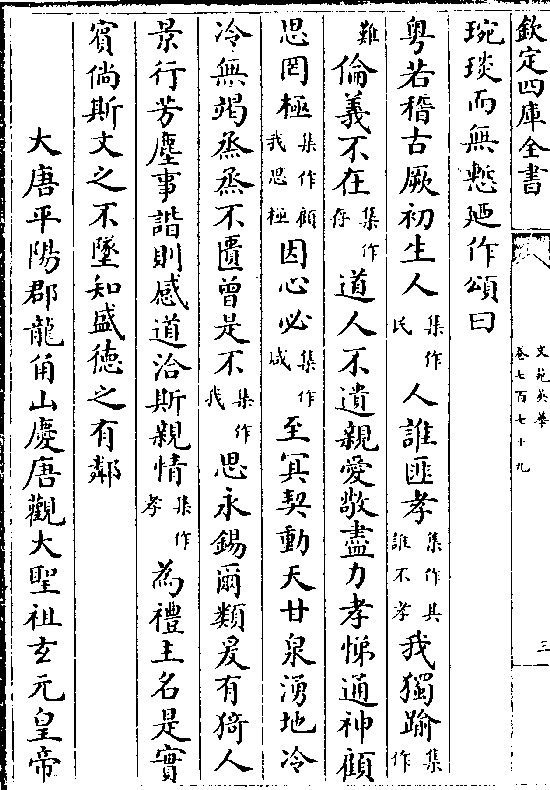 欽定四庫全書
文苑英華
卷七百七十九
三
琬琰而無慙廼作頌曰
粤若稽古厥初生人集作民人誰匪孝集作其誰不孝我獨踰集作
難倫義不在集作存道人不遺親愛敬盡力孝悌通神顧
思罔極集作顧我思極因心必集作咸至冥契動天甘泉湧地冷
冷無竭烝烝不匱曾是不集作我思永錫爾類爰有猗人
景行芳塵事諧則感道洽斯親情集作孝為禮主名是實
賓倘斯文之不墜知盛德之有鄰
大唐平陽郡龍角山慶唐觀大聖祖玄元皇帝